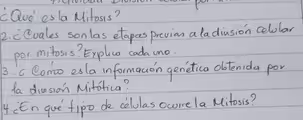 ¿Qué es la Mitosis?
2. ¿Cuales son las etapas previas a la división celular
por mitosis? Explica cada uno.
3. ¿Como es la información genética obtenida por
la división Mitótica?
4. ¿En qué tipo de células ocurre la Mitosis?